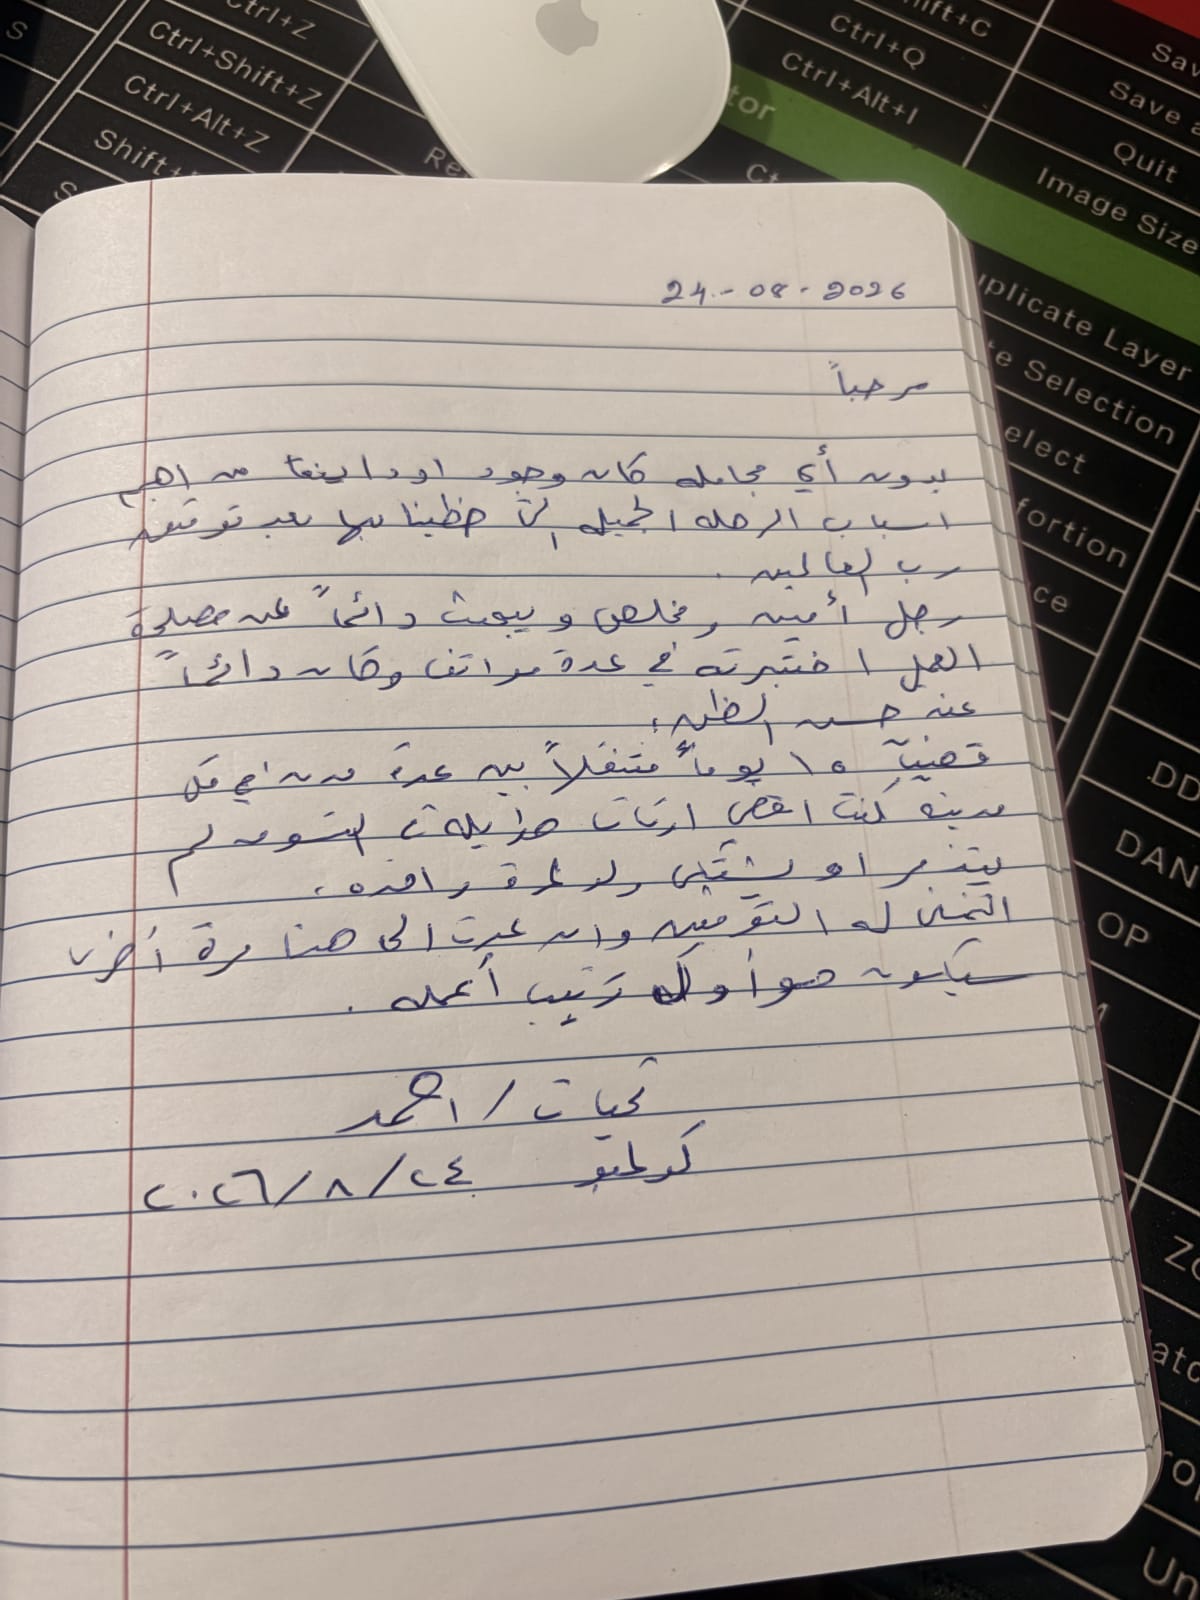 S
Ctrl+Z
Ctrl+Shift+Z
Ctrl+Alt+Z
Shift+
Re
Ctrl+Q
Ctrl+Alt+I
Shift+C
Sav
Save a
Quit
Image Size
tor
Ct
uplicate Layer
te Selection
elect
fortion
ce
DD
DAN
OP
Zo
ato
ro
Un
24-08-2026
مرحباً
بدون أي مجامله كان وجود اودايغا من اهم
اسباب الرحله الجميله التي حظينا بها بعد توفيق
رب العالمين.
رجل أمين ومخلص ويبحث دائماً عن مصلحة
العمل اختبرته في عدة مواقف وكان دائماً
عند حسن الظن.
قضيت ١٥ يوماً متنقلاً بين عدة مدن في كل
مدينه كنت اقضي اوقات طويله للتسوق لم
يتذمر او يشتكي ولو لمرة واحده.
اتمنى له التوفيق وان عدت الى هنا مرة أخرى
سيكون هو أول من أعمله.
تحيات / احمد
كولمبو ٢٠٢٦/٨/٢٤